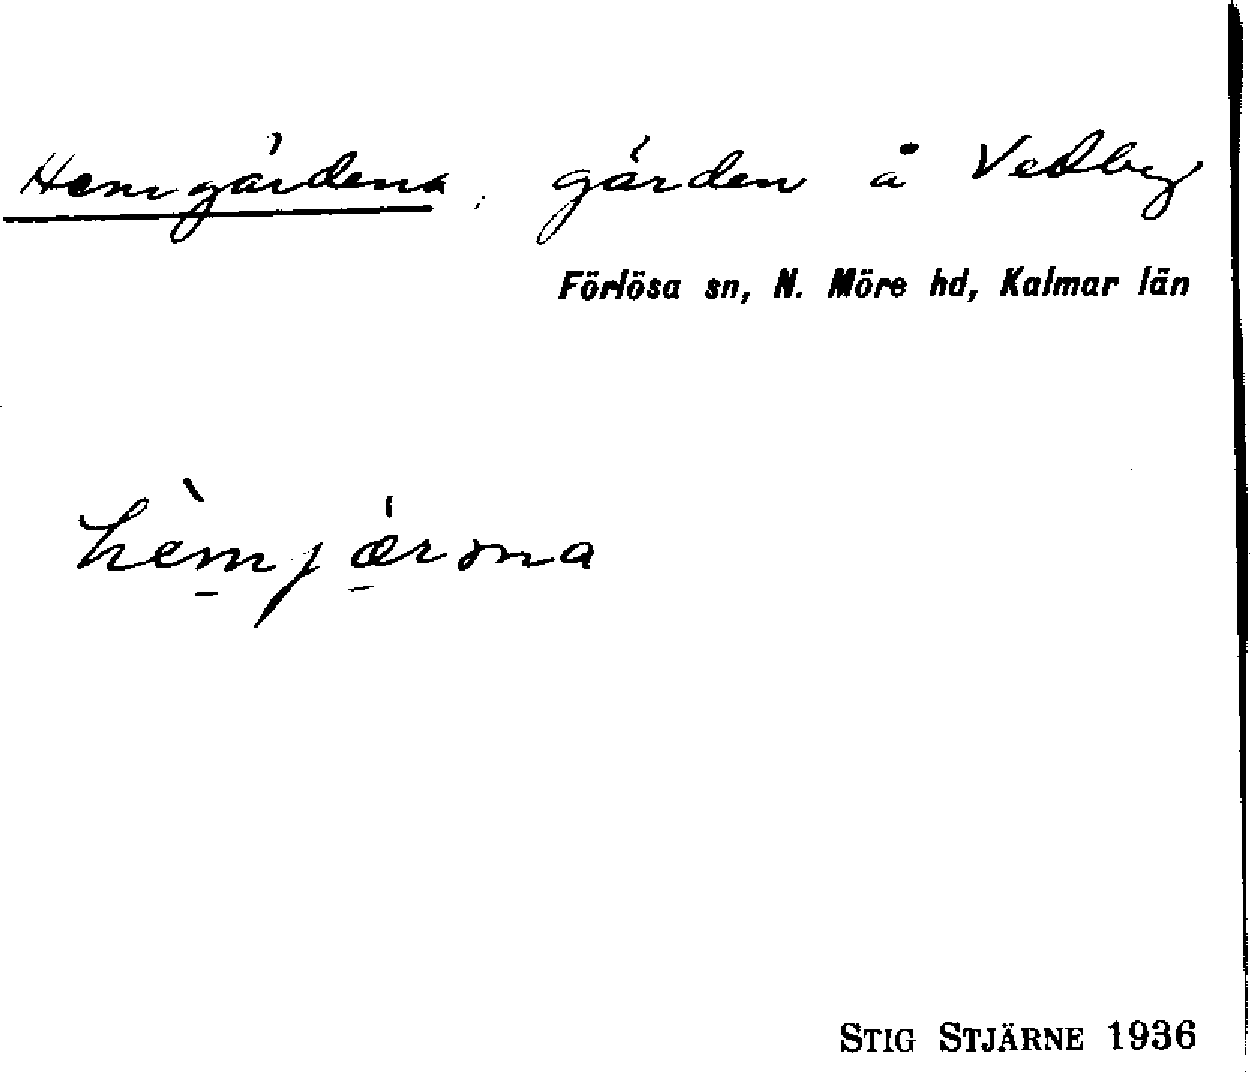 Hemgärdena, gärden å Vedby
Förlösa sn, N. Möre hd, Kalmar län
hèmjærona
STIG STJÄRNE 1936